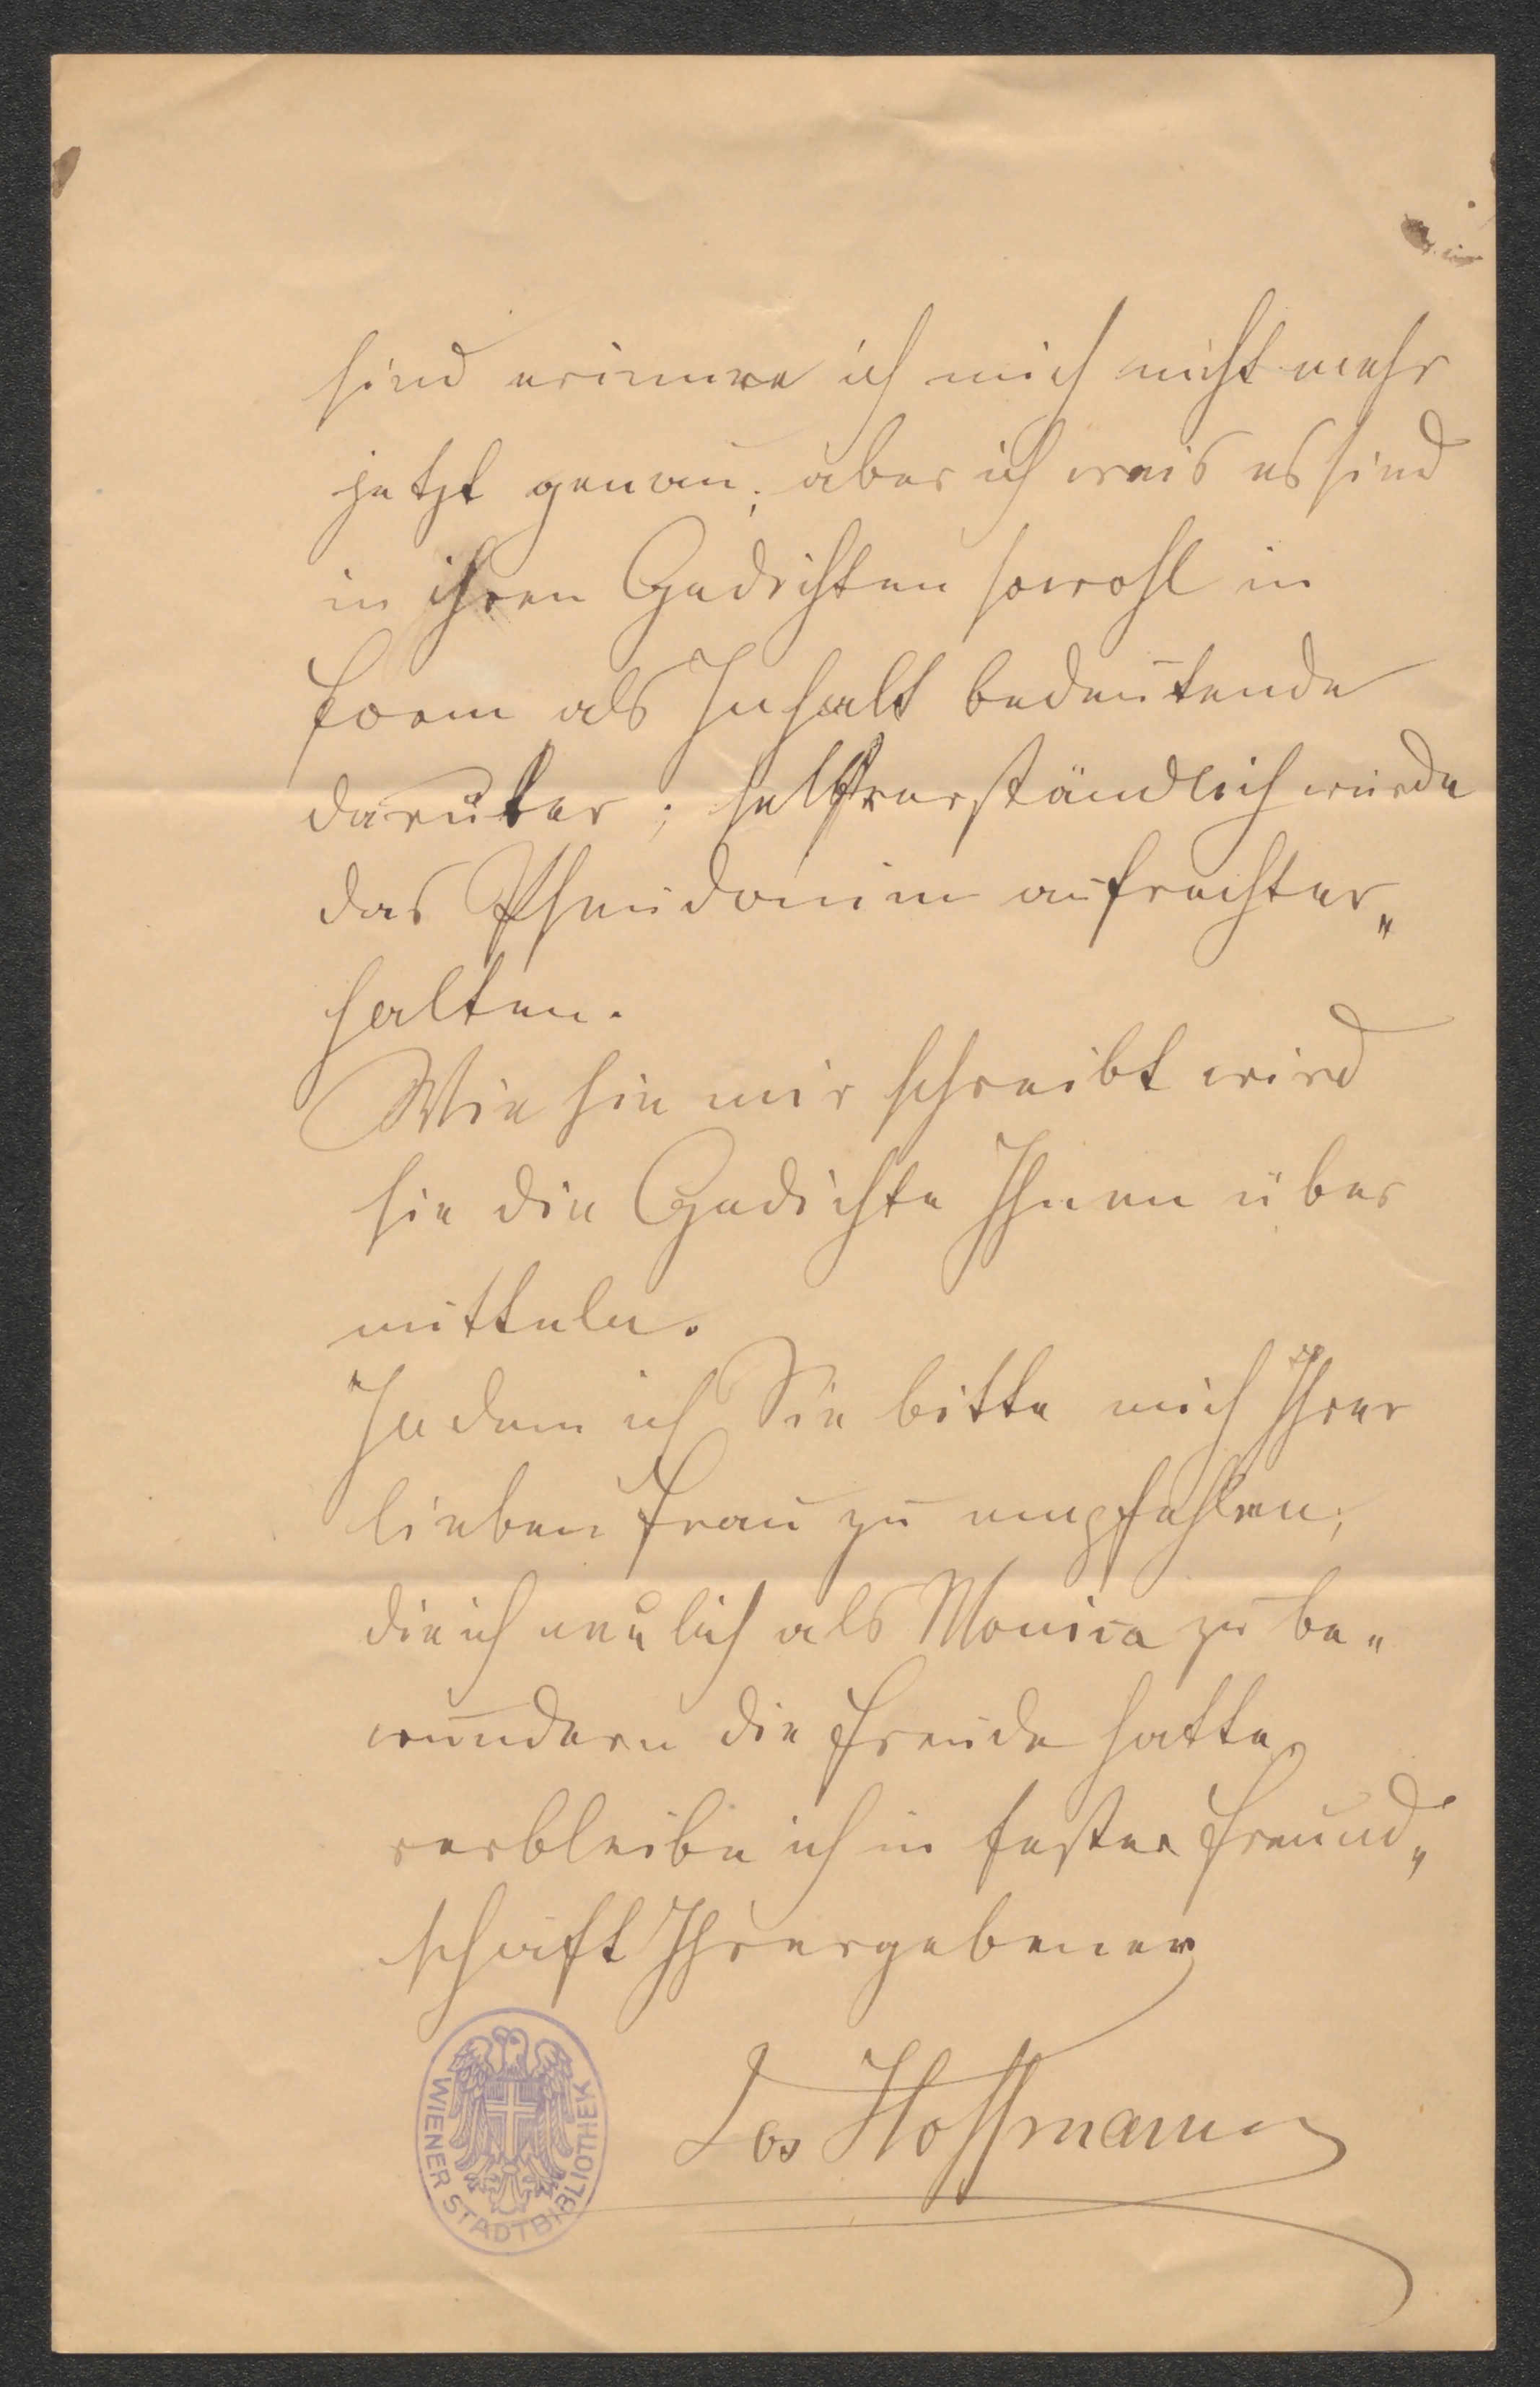 sind erinnere ich mich nicht mehr
jetzt genau; aber ich weis es sind
in ihren Gedichten sowohl in
Form als Inhalt bedeutende
darunter; selbstverständlich würde
das Pseudonim aufrechter„
halten.
Wie sie mir schreibt wird
sie die Gedichte Ihnen über
mitteln.
Indem ich Sie bitte mich Ihrer
lieben Frau zu empfehlen,
die ich neulich als Monica zu be„
wundern die Freude hatte
verbleibe ich in fester Freund„
schaft Ihr ergebener
Jos Hoffmann
WIENER STADTBIBLIOTHEK